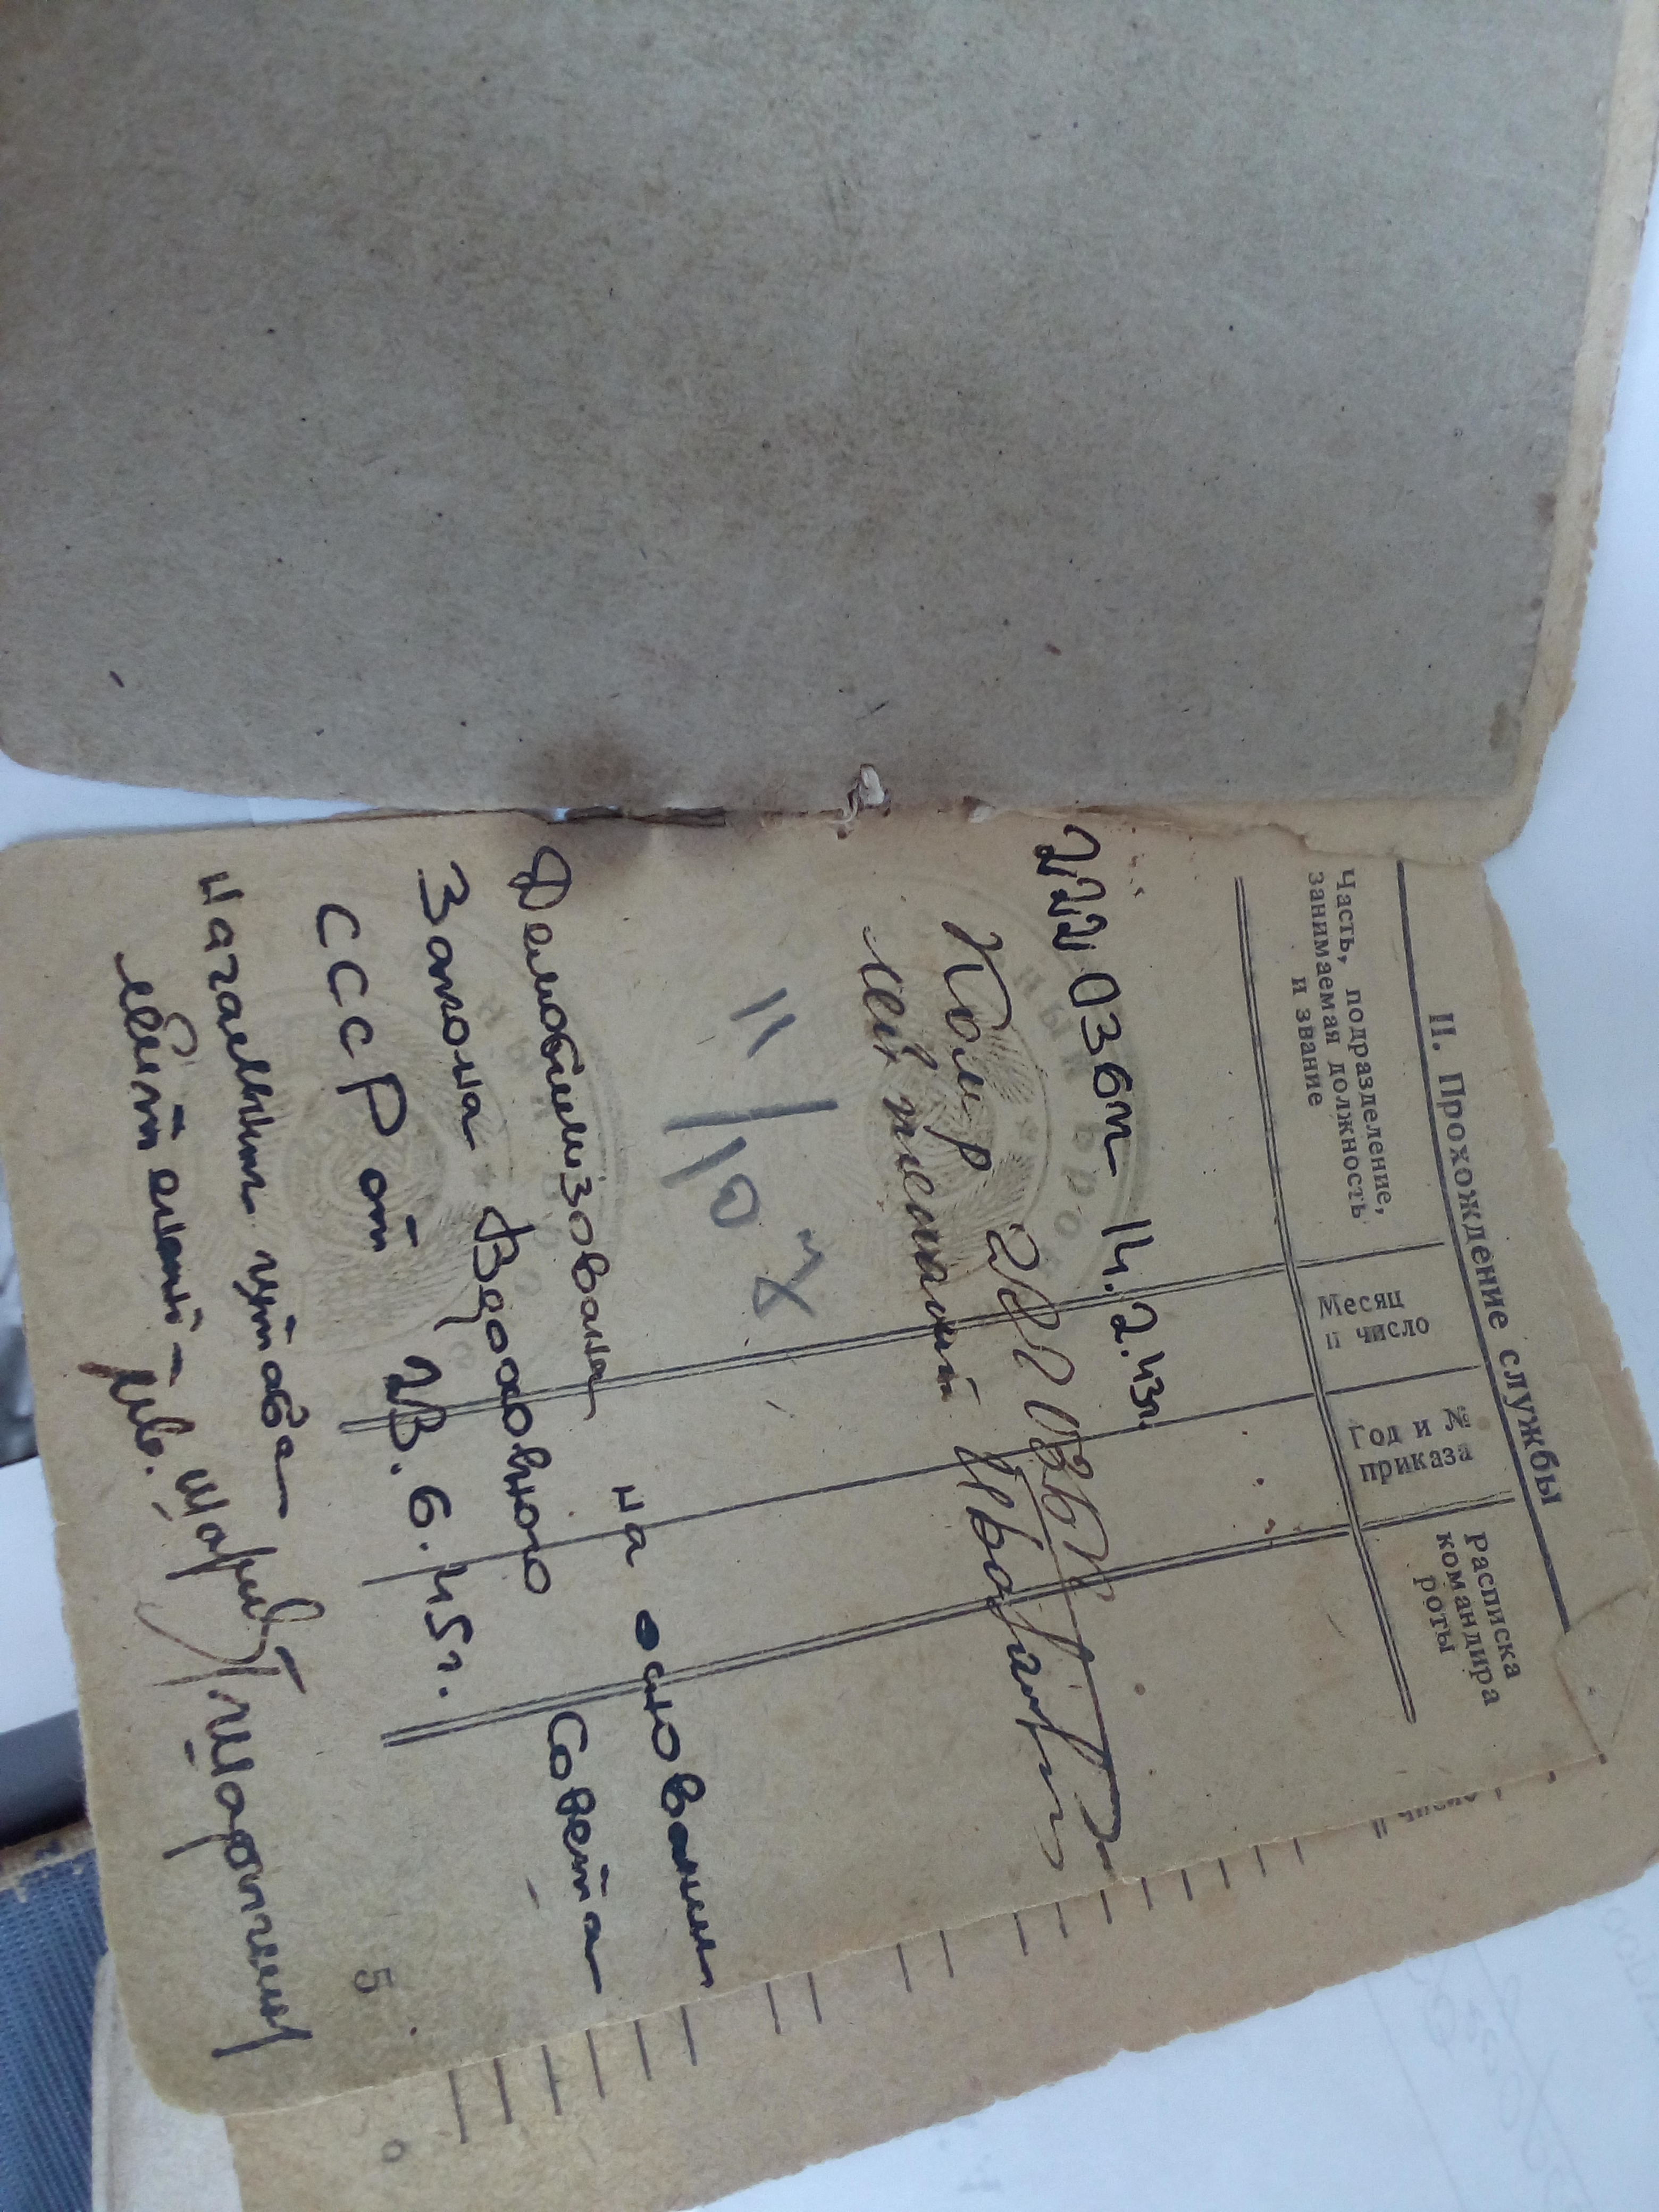 II. Прохождение службы
Часть, подразделение,
занимаемая должность
и звание
Месяц
и число
Год и №
приказа
Расписка
командира
роты
222 ОЗБТ 14.2.43г.
Комр 222 ОЗБТ
лейтенант
11/10
Демобилизован на основании
Закона Верховного Совета
СССР от 23.6.45г.
Начальник штаба
лейтенант
5
число